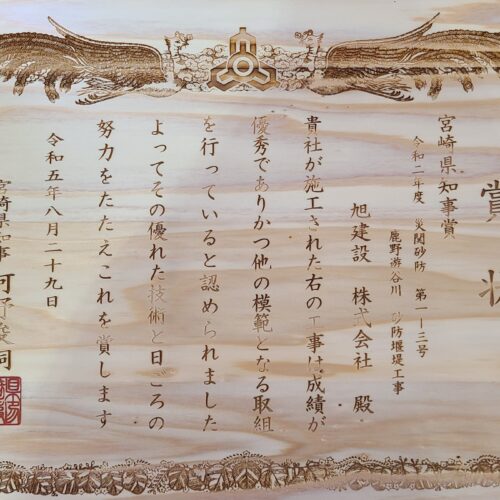 賞状
宮崎県知事賞
令和二年度 災関砂防 第一-三号
鹿野游谷川 砂防堰堤工事
旭建設 株式会社 殿
貴社が施工された右の工事は成績が
優秀でありかつ他の模範となる取組
を行っていると認められました
よってその優れた技術と日ごろの
努力をたたえこれを賞します
令和五年八月二十九日
宮崎県知事 河野俊嗣